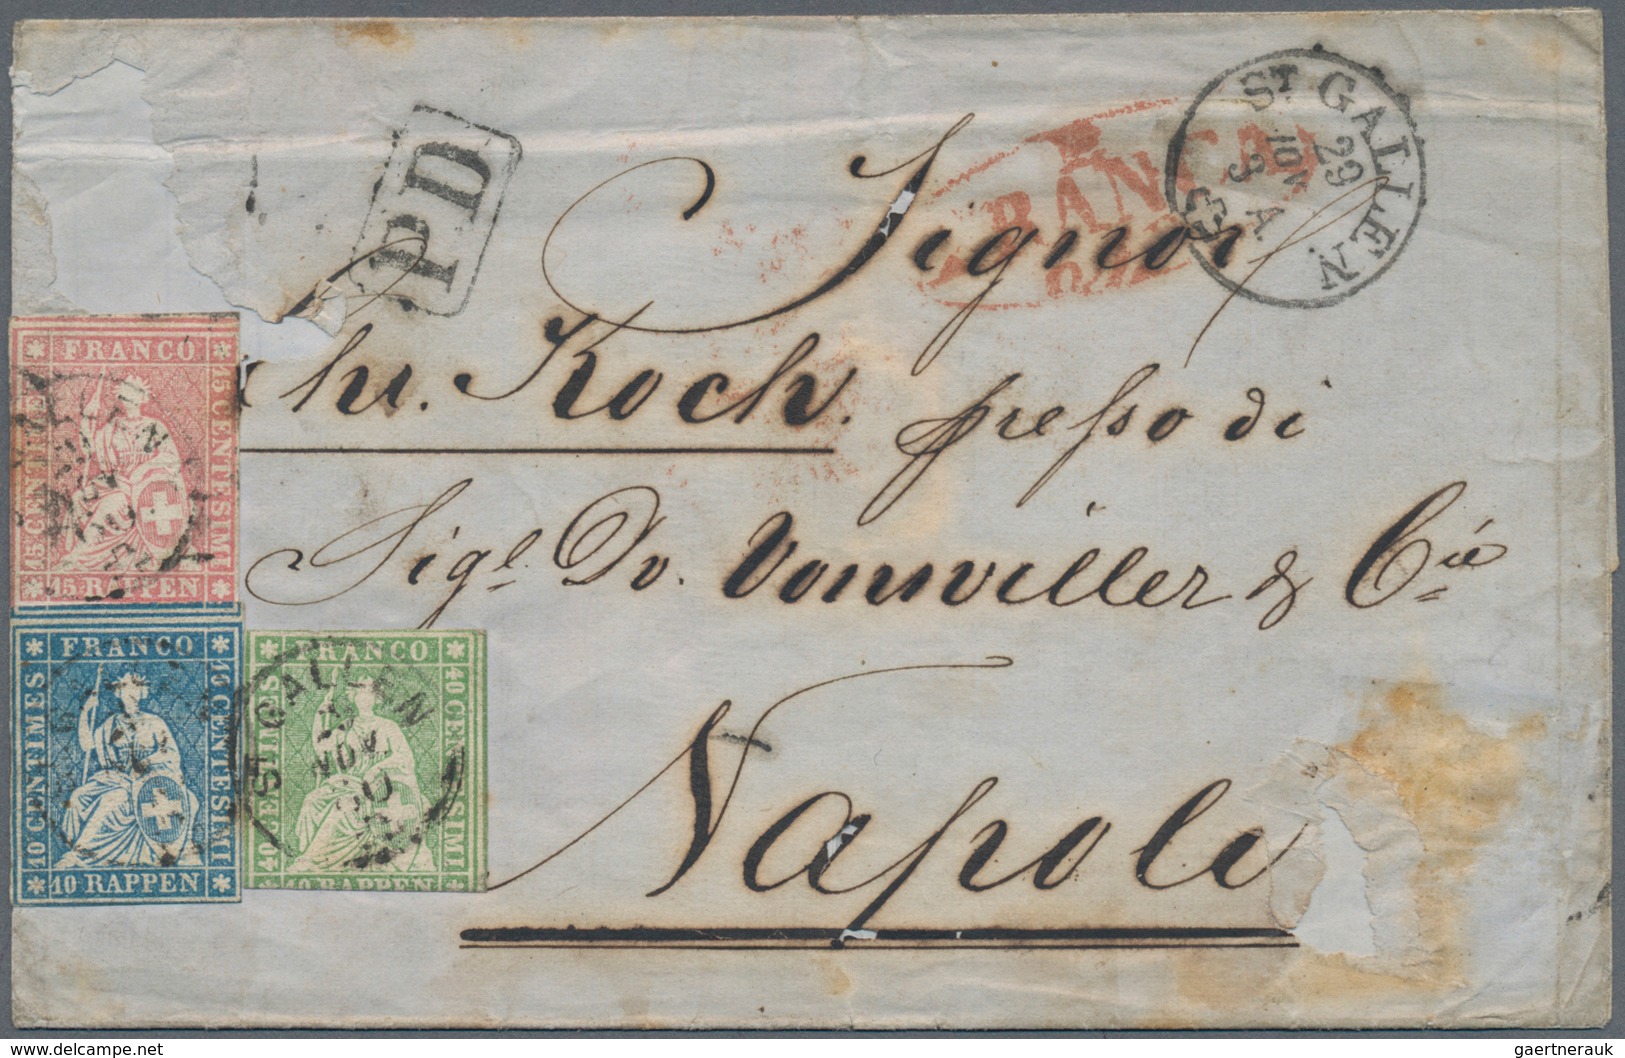 PD
ST GALLEN
29
NOV
3 A
Signor
Chr. Koch. presso di
Sigi. Dv. Vonwiller & Cie
Napoli
FRANCO
15 CENTIMES
15 CENTESIMI
15 RAPPEN
FRANCO
10 CENTIMES
15 CENTESIMI
10 RAPPEN
FRANCO
40 CENTIMES
40 CENTESIMI
40 RAPPEN
ST GALLEN
NOV
gaertnerauk